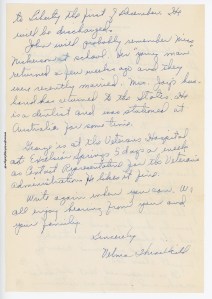 to Liberty the first of December. He
will be discharged.
John will probably remember Miss
at school. Her "young man"
returned a few weeks ago and they
were recently married. Mrs. Jay's
husband has returned to the States. He
is a dentist and was stationed at
Australia for some time.
George is at the Veterans Hospital
at Excelsior Springs 5 days a week
as Contact Representative for the Veterans
Administration. He likes it fine.
Write again when you can. We
all enjoy hearing from you and
your family.
Sincerely
Velma Threlkeld